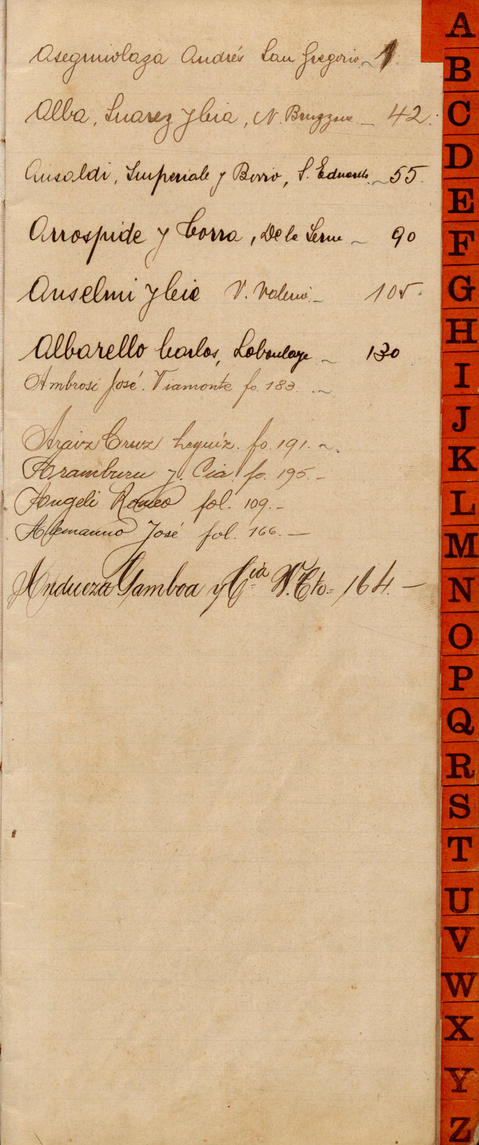 Asegmiolaza Andrés San Gregorio 1
Alba, Suarez y Cia, N. Bruzzone 42
Ansaldi, Imperiale y Bovio, S. Eduardo 55
Arrospide y Corra, De la Serna 90
Anselmi y Cia V. Valeria 105
Albarello Carlos, Laboulaye 130
Ambrosi José. Viamonte fo. 183.
Araiz Cruz fo. 191.
Aramburu y Cia. fo. 195.
Angeli Romeo fol. 109.
Alemanno José fol. 166.
Andueza Gamboa y Cía V. Cto. 164
A
B
C
D
E
F
G
H
I
J
K
L
M
N
O
P
Q
R
S
T
U
V
W
X
Y
Z